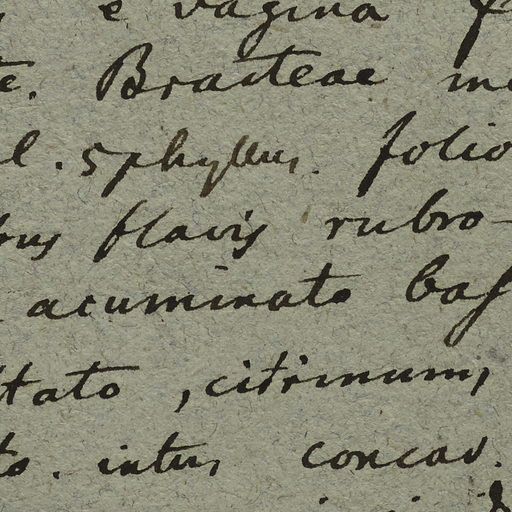 e vagina
te. Bracteae
l. 5phyllus. folio
bus flavis rubro-
acuminato bas
tato, citrinum,
to. intus concav.